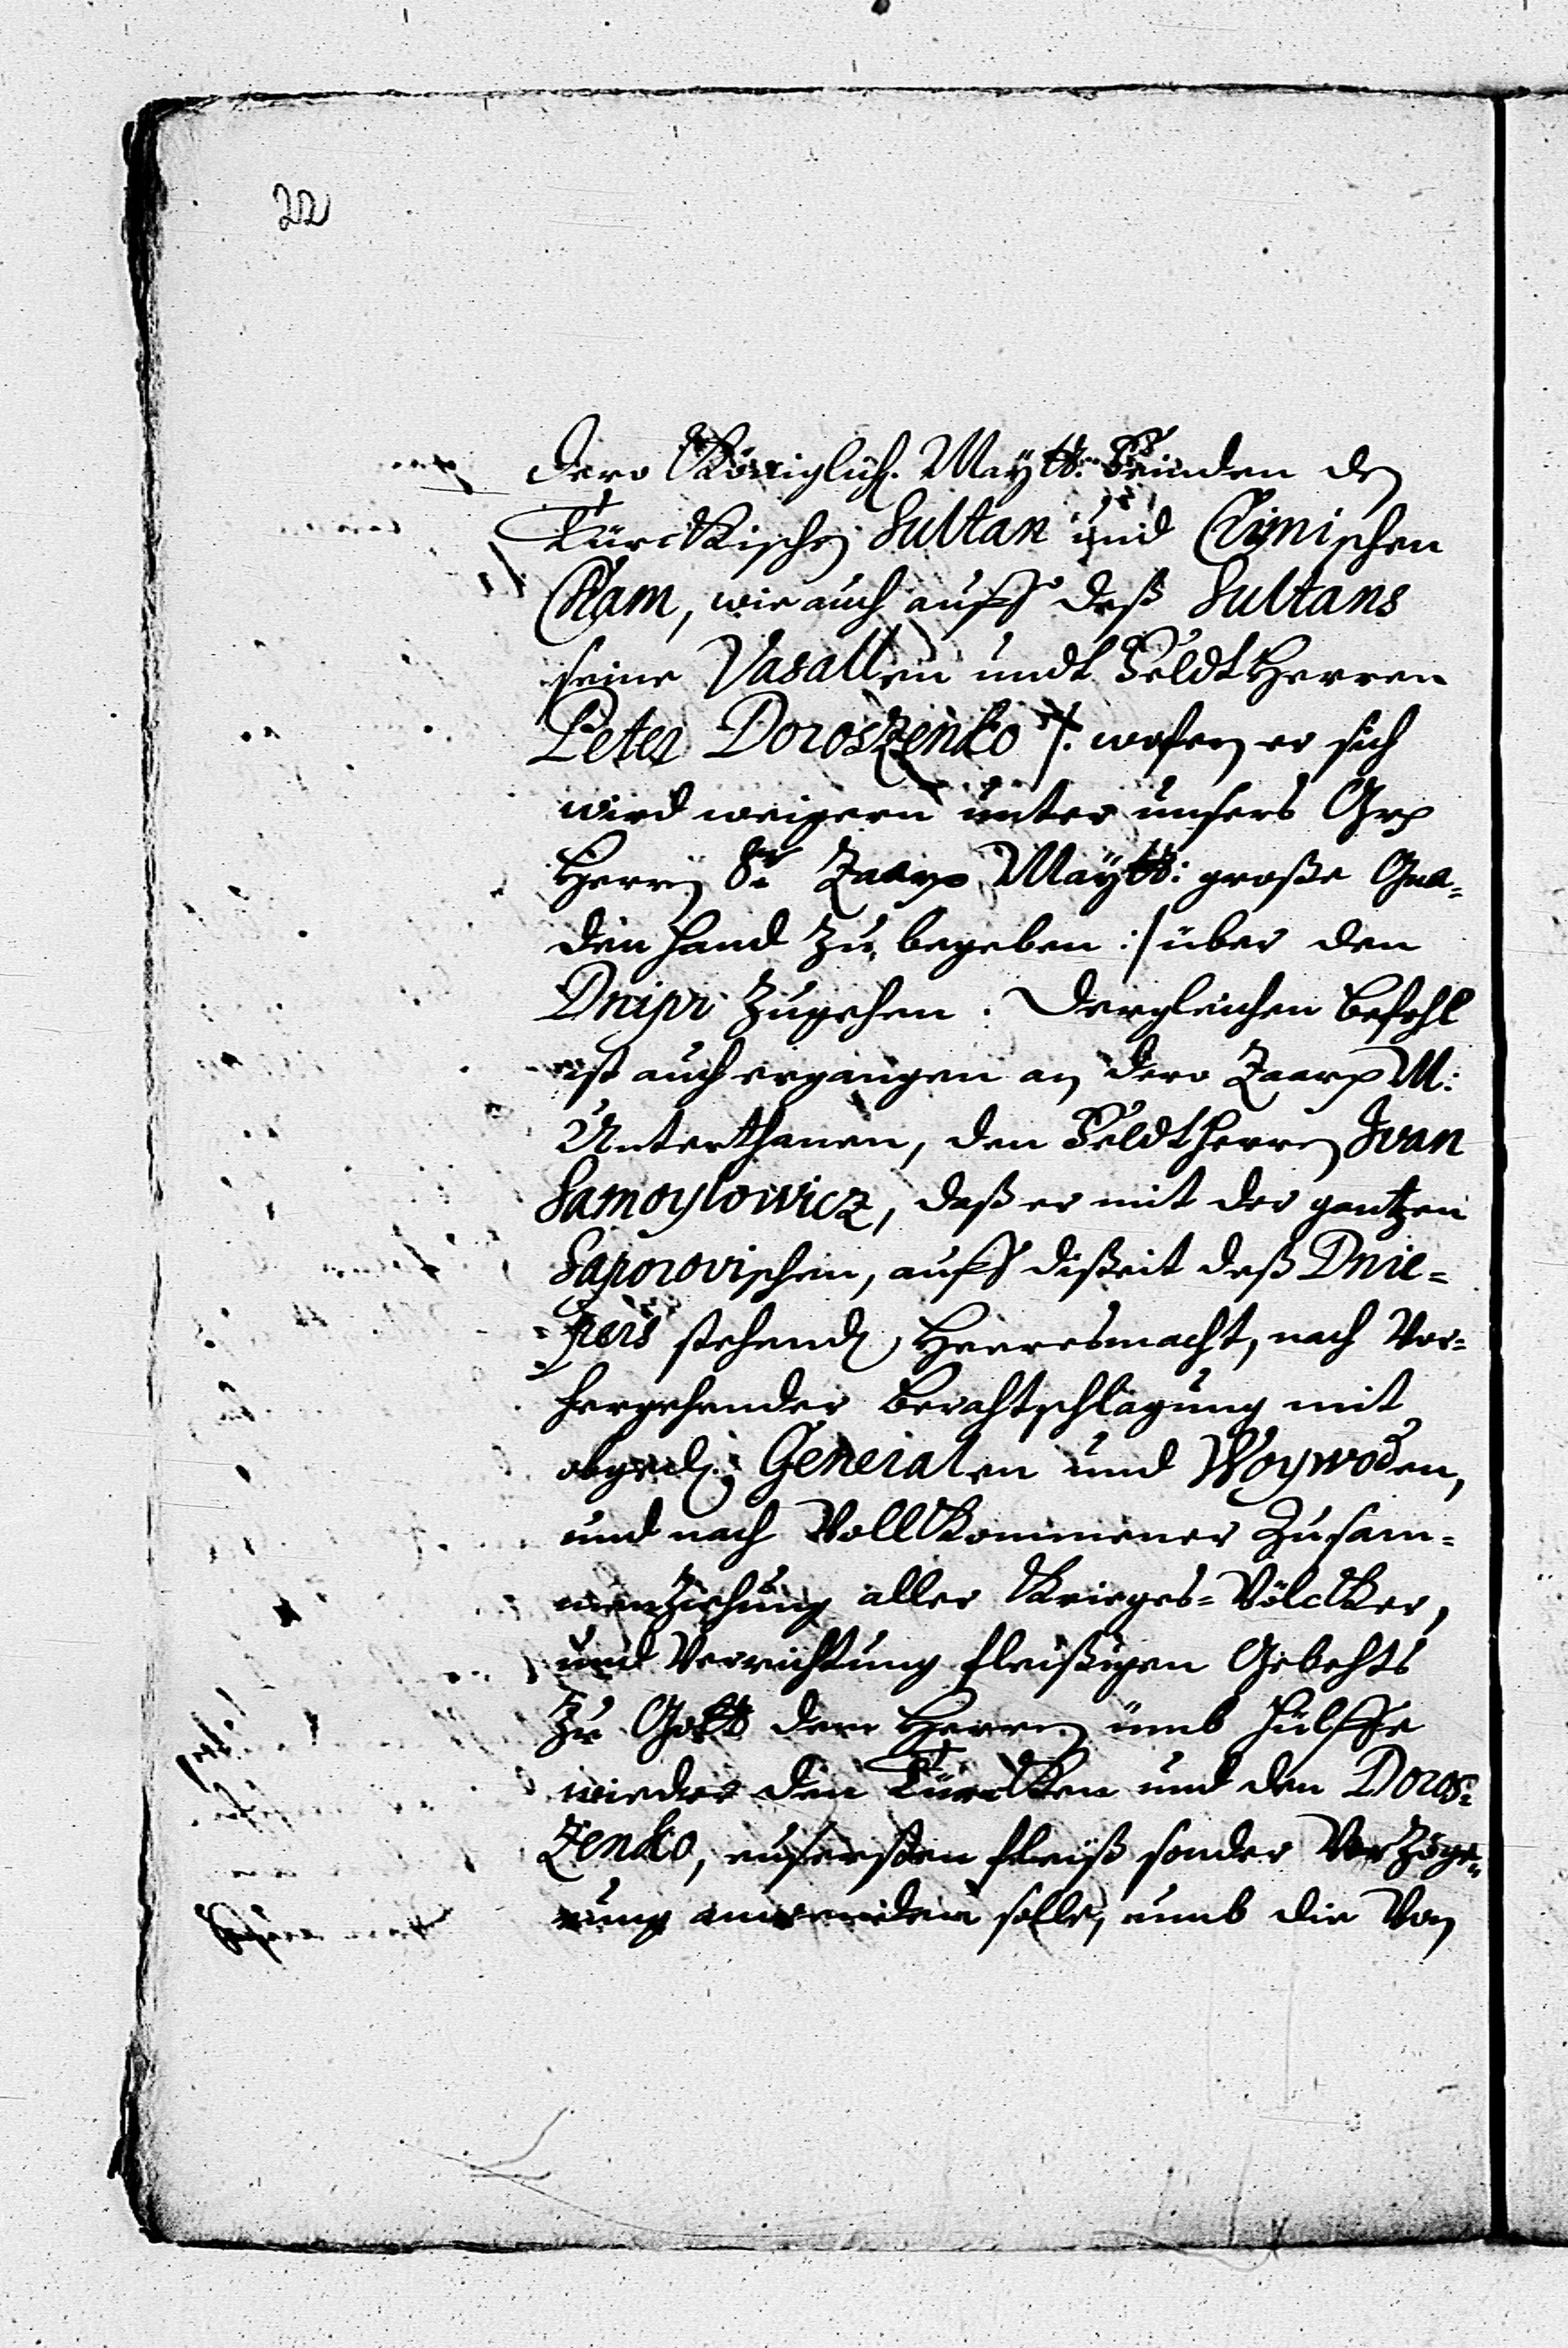 22
Dero Königlich. Maÿtt: Feinden den
Türckischen Sultan und Crimischen
Cham, wie auch auff deß Sultans
seine Vasallen undt Feldt Herren
Peter Doroszenko /: wofern er sich
wird weigern unter unsers Gr.
Herren Sr Zaar. Maÿtt: große Gna=
den hand zu begeben :/ über den
Dnipr zugehen. Dergleichen Befehl
ist auch ergangen an dero Zaar. M:
Unterthanen, den Feldtherren Ivan
Samoylowicz, daß er mit der gantzen
Saporovischen, auff dißeit deß Dnie=
pers stehend Heeresmacht, nach Vor=
hergehender Berahtschlagung mit
obged. Generalen und Woywoden,
und nach Vollkommener Zusam=
menziehung aller Krieges=Völcker,
und Verrichtung fleißigen Gebehts
zu Gott dem Herren umb hülffe
wieder den Türcken und den Doros=
zenko, eusersten fleiß sonder Verzöge=
rung anwenden solle, umb die Von